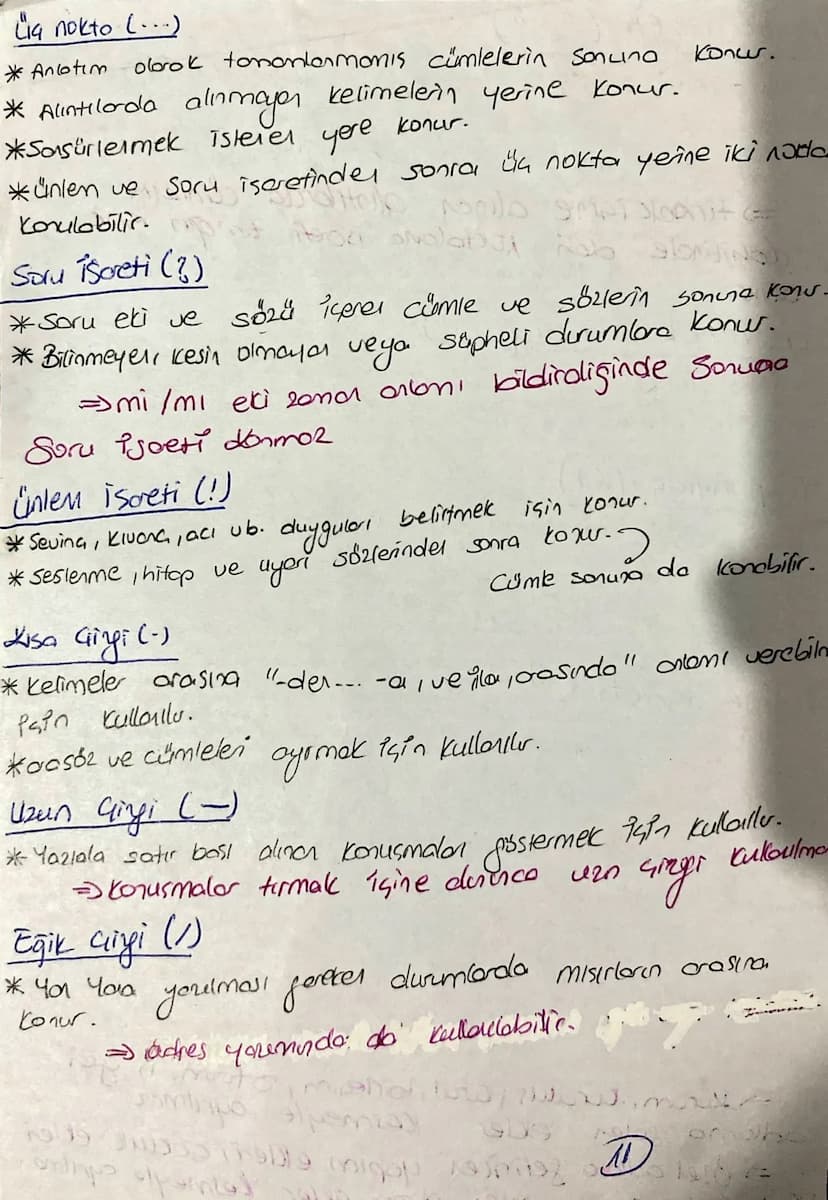 Üç nokta (...)
* Anlatım olarak tamamlanmamış cümlelerin sonuna konur.
* Alıntılarda alınmayan kelimelerin yerine konur.
* Sansürlenmek istenen yere konur.
* Ünlem ve soru işaretinden sonra üç nokta yerine iki nokta
konulabilir.
Soru İşareti (?)
* Soru eki ve sözü içeren cümle ve sözlerin sonuna konur.
* Bilinmeyen, kesin olmayan veya şüpheli durumlara konur.
⇒ mi/mı eki zaman anlamı bildirdiğinde sonuna
Soru işareti konmaz
Ünlem işareti (!)
* Sevinç, kıvanç, acı vb. duyguları belirtmek için konur.
* Seslenme, hitap ve uyarı sözlerinden sonra konur.
Cümle sonuna da konabilir.
Kısa Çizgi (-)
* Kelimeler arasına "-den... -a, ve, ila, arasında" anlamı verebilm
için kullanılır.
* arasöz ve cümleleri ayırmak için kullanılır.
Uzun Çizgi (—)
* Yazıda satır başı alınan konuşmaları göstermek için kullanılır.
⇒ Konuşmalar tırnak içine alınınca uzun çizgi kullanılma
Eğik Çizgi (/)
* Yan Yana yazılması gereken durumlarda mısırların arasına
konur.
⇒ adres yazımında da kullanılabilir.
11